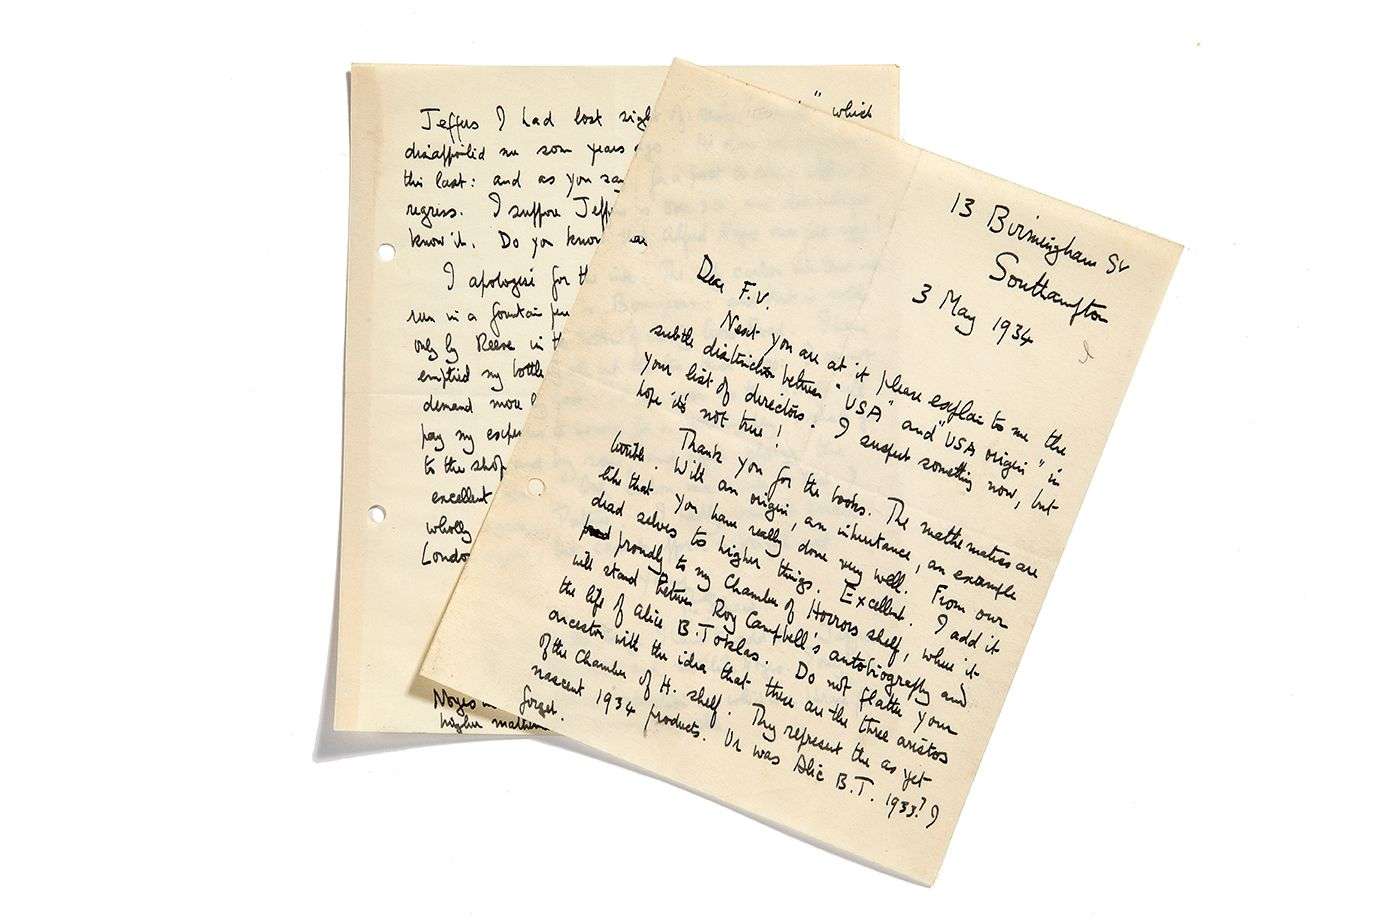 13 Birmingham St
Southampton
3 May 1934
Dear F.V.
Next you are at it please explain to me the
subtle distinction between "USA" and "USA origin" in
your list of directors. I suspect something now, but
hope it's not true!
Thank you for the books. The mathematics are
With an origin, an inheritance, an example
like that you have really done very well. From our
dead selves to higher things. Excellent. I add it
proudly to my Chamber of Horrors shelf, where it
will stand between Roy Campbell's autobiography and
the life of Alice B. Toklas. Do not flatter your
ancestor with the idea that these are the three aristos
of the Chamber of H. shelf. They represent the as yet
nascent 1934 products. Or was Alic B.T. 1933?)
Jeffers I had lost which
me some years
this last: and as you
regress. I suppose
know it. Do you know
I apologise for
run in a fountain pen
only by Reeve in
emptied my bottle
demand more
pay my
to the shop
excellent
wholly
Noyes forget.
higher